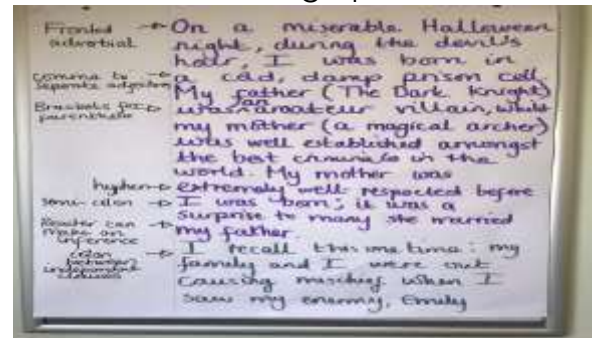 Fronted adverbial → On a miserable Halloween
night, during the devil's
hour, I was born in
comma to separate adjectives → a cold, damp prison cell.
Brackets for parenthesis → My father (The Dark Knight)
was an amateur villain, whilst
my mother (a magical archer)
was well established amongst
the best criminals in the
world. My mother was
hyphen → extremely well-respected before
semi-colon → I was born; it was a
Reader can make an inference → surprise to many she married
my father.
colon between independent clauses → I recall this one time: my
family and I were out
causing mischief when I
saw my enemy, Emily